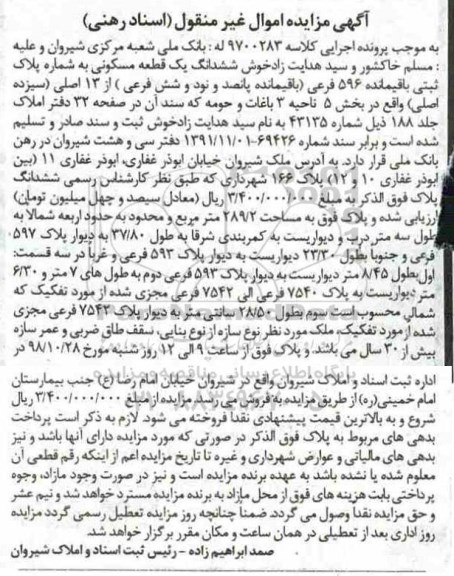 آگهی مزایده اموال غیر منقول (اسناد رهنی)
به موجب پرونده اجرایی کلاسه ۹۷۰۰۲۸۳ له : بانک ملی شعبه مرکزی شیروان و علیه
: مسلم خاکشور و سید هدایت زادخوش ششدانگ یک قطعه مسکونی به شماره پلاک
ثبتی باقیمانده ۵۹۶ فرعی (باقیمانده پانصد و نود و شش فرعی ) از ۱۳ اصلی (سیزده
اصلی) واقع در بخش ۵ ناحیه ۳ باغات و حومه که سند آن در صفحه ۳۲ دفتر املاک
جلد ۱۸۸ ذیل شماره ۴۳۱۳۵ به نام سید هدایت زادخوش ثبت و سند صادر و تسلیم
شده است و برابر سند شماره ۶۹۴۲۶-۱۳۹۱/۱۱/۰۱ دفتر سی و هشت شیروان در رهن
بانک ملی قرار دارد. به آدرس ملک شیروان خیابان ابوذر غفاری، ابوذر غفاری ۱۱ (بین
ابوذر غفاری ۱۰ و ۱۲) پلاک ۱۶۶ شهرداری که طبق نظر کارشناس رسمی ششدانگ
پلاک فوق الذکر به مبلغ ۳/۴۰۰/۰۰۰/۰۰۰ ریال (معادل سیصد و چهل میلیون تومان)
ارزیابی شده و پلاک فوق به مساحت ۲۸۹/۲ متر مربع و محدود به حدود اربعه شمالا به
طول سه متر درب و دیواریست به کمربندی شرقا به طول ۳۷/۸۰ به دیوار پلاک ۵۹۷
فرعی و جنوبا بطول ۲۳/۳۰ دیواریست به دیوار پلاک ۵۹۳ فرعی و غرباً در سه قسمت:
اول بطول ۸/۴۵ متر دیواریست به دیوار پلاک ۵۹۳ فرعی دوم به طول های ۷ متر و ۶/۳۰
متر دیواریست به پلاک ۷۵۴۰ فرعی الی ۷۵۴۲ فرعی مجزی شده از مورد تفکیک که
شمالی محسوب است سوم بطول ۲۸/۵۰ سانتی متر به دیوار پلاک ۷۵۴۲ فرعی مجزی
شده از مورد تفکیک، ملک مورد نظر نوع سازه از نوع بنایی، سقف طاق ضربی و عمر سازه
بیش از ۳۰ سال می باشد. و پلاک فوق از ساعت ۹ الی ۱۲ روز شنبه مورخ ۹۸/۱۰/۲۸ در
اداره ثبت اسناد و املاک شیروان واقع در شیروان خیابان امام رضا (ع) جنب بیمارستان
امام خمینی(ره) از طریق مزایده به فروش می رسد. مزایده از مبلغ ۳/۴۰۰/۰۰۰/۰۰۰ ریال
شروع و به بالاترین قیمت پیشنهادی نقدا فروخته می شود. لازم به ذکر است پرداخت
بدهی های مربوط به پلاک فوق الذکر در صورتی که مورد مزایده دارای آنها باشد و نیز
بدهی های مالیاتی و عوارض شهرداری و غیره تا تاریخ مزایده اعم از اینکه رقم قطعی آن
معلوم شده یا نشده باشد به عهده برنده مزایده است و نیز در صورت وجود مازاد، وجوه
پرداختی بابت هزینه های فوق از محل مازاد به برنده مزایده مسترد خواهد شد و نیم عشر
و حق مزایده نقدا وصول می گردد. ضمناً چنانچه روز مزایده تعطیل رسمی گردد مزایده
روز اداری بعد از تعطیلی در همان ساعت و مکان مقرر برگزار خواهد شد.
صمد ابراهیم زاده – رئیس ثبت اسناد و املاک شیروان